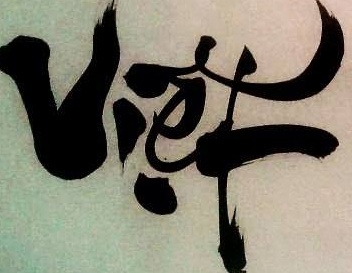 Việt